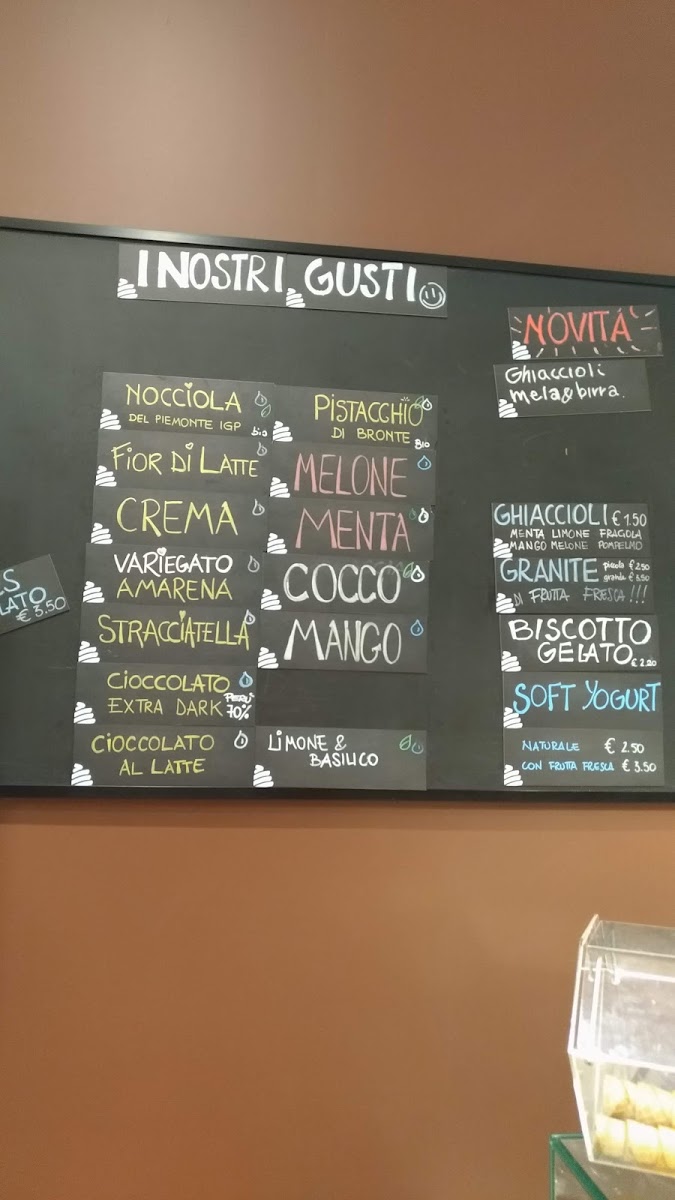 I NOSTRI GUSTI
NOCCIOLA
DEL PIEMONTE IGP
bio
FIOR DI LATTE
CREMA
VARIEGATO
AMARENA
STRACCIATELLA
CIOCCOLATO
EXTRA DARK
PERÙ
70%
CIOCCOLATO
AL LATTE
PISTACCHIO
DI BRONTE
BIO
MELONE
MENTA
COCCO
MANGO
LIMONE &
BASILICO
NOVITÁ
Ghiaccioli
mela&birra.
GHIACCIOLI € 1.50
MENTA LIMONE FRAGOLA
MANGO MELONE POMPELMO
GRANITE piccola € 2.50
grande € 3.50
DI FRUTTA FRESCA!!!
BISCOTTO
GELATO € 2.20
SOFT YOGURT
NATURALE € 2.50
CON FRUTTA FRESCA € 3.50
€ 3.50